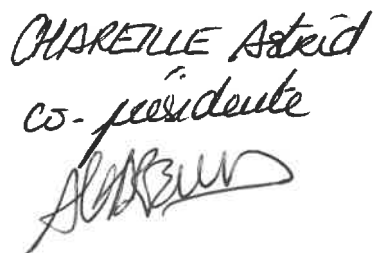 CHAREILLE Astrid
co-présidente